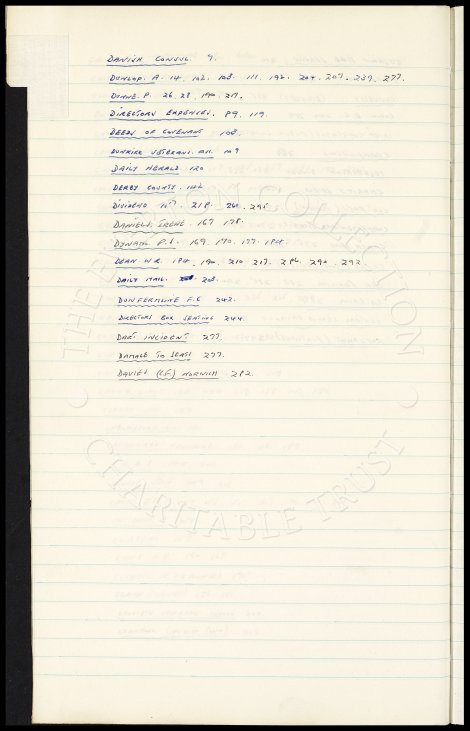 DANISH CONSUL. 9.
DUNLOP. A. 14. 102. 108. 111. 192. 204. 207. 239. 277.
DUNNE. P. 26. 28. 190. 217.
DIRECTORS EXPENSES. 89. 119.
DEEDS OF COVENANT. 108.
DUNKIRK VETERANS. 109
DAILY HERALD. 120
DERBY COUNTY. 142
DIVIDEND 157. 218. 264. 295
DANIELS, IRENE. 167. 178.
DYNAM P.L. 169. 170. 177. 184.
DEAN W.R. 184. 190. 210. 217. 286. 290. 292.
DAILY MAIL. 203.
DUNFERMLINE F.C 242.
DIRECTORS BOX SEATING 244.
DART INCIDENT 277.
DAMAGE TO SEATS 277.
DAVIES (CF) NORWICH 282.
THE COLLECTION
CHARITABLE TRUST